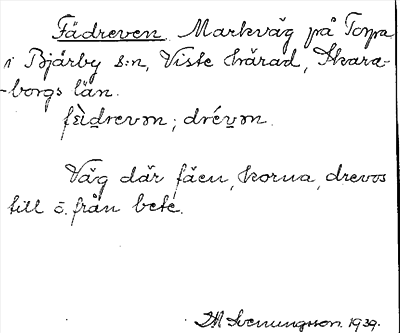 Fädreven Markväg på Torpa
i Bjärby s:n, Viste härad, Skara-
-borgs län.
fèi̯drevən ; drévən.
Väg där fäen, korna, drevos
till o. från bete.
Svenungsson. 1939.